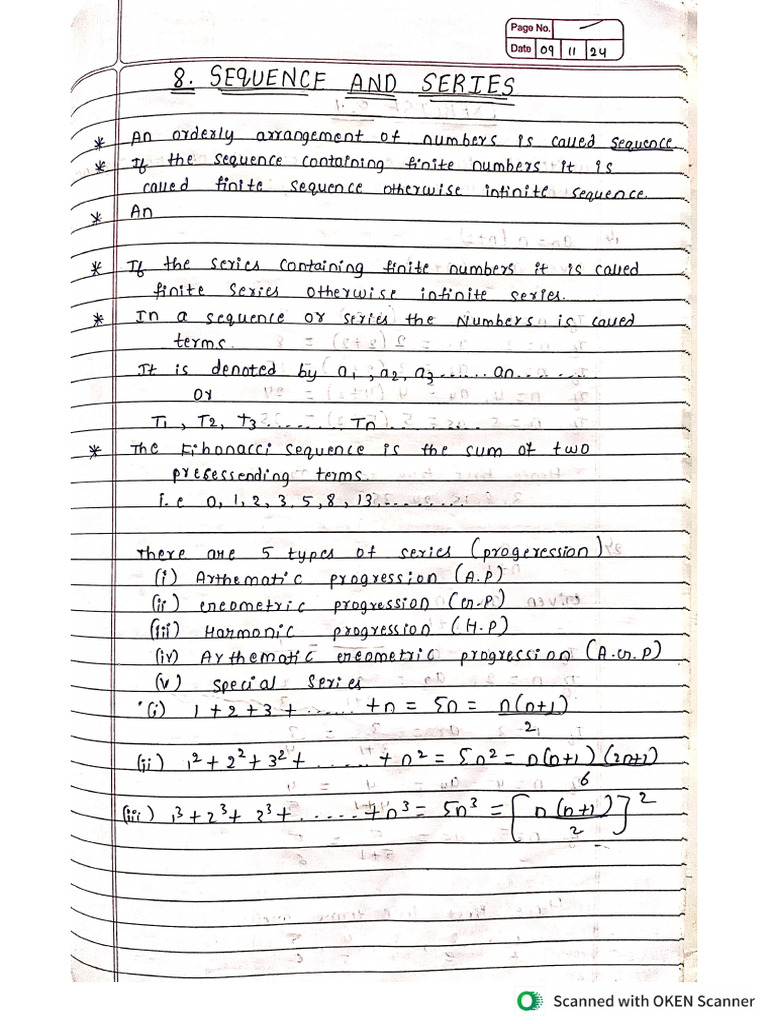 Page No.
Date 09 11 24
8. SEQUENCE AND SERIES
* An orderly arrangement of numbers is called sequence.
* If the sequence containing finite numbers it is
called finite sequence otherwise infinite sequence.
* An
* If the series containing finite numbers it is called
finite series otherwise infinite series.
* In a sequence or series the Numbers is called
terms.
It is denoted by a1, a2, a3...... an......
or
T1, T2, t3........ Tn
* The Fibonacci sequence is the sum of two
precessending terms.
i.e 0, 1, 2, 3, 5, 8, 13..........
There are 5 types of series (progeression)
(i) Arthematic progression (A.P)
(ii) Geometric progression (G.P)
(iii) Harmonic progression (H.P)
(iv) Arthematic Geometric progression (A.G.P)
(v) special series
(i) 1 + 2 + 3 + ...... + n = Σn = n(n+1)/2
(ii) 1² + 2² + 3² + ...... + n² = Σn² = n(n+1)(2n+1)/6
(iii) 1³ + 2³ + 3³ + ...... + n³ = Σn³ = [n(n+1)/2]²
Scanned with OKEN Scanner